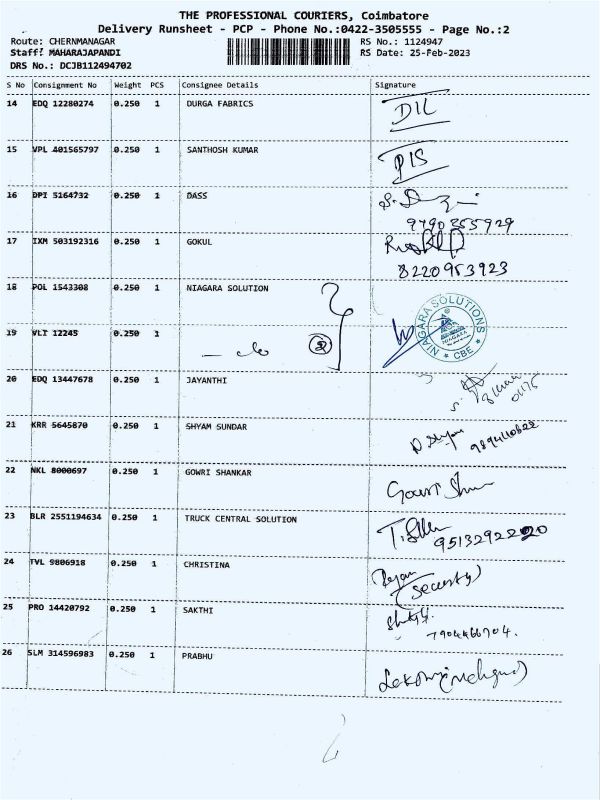 THE PROFESSIONAL COURIERS, Coimbatore
Delivery Runsheet - PCP - Phone No.:0422-3505555 - Page No.:2
Route: CHERNMANAGAR RS No.: 1124947
Staff: MAHARAJAPANDI RS Date: 25-Feb-2023
DRS No.: DCJB112494702
S No Consignment No Weight PCS Consignee Details Signature
14 EDQ 12280274 0.250 1 DURGA FABRICS DIL
15 VPL 401565797 0.250 1 SANTHOSH KUMAR
16 DPI 5164732 0.250 1 DASS
9790355929
17 IXM 503192316 0.250 1 GOKUL
8220953923
18 POL 1543308 0.250 1 NIAGARA SOLUTION
NIAGARA SOLUTIONS
NIAGARA
* CBE *
19 VLT 12245 0.250 1 — do 2
20 EDQ 13447678 0.250 1 JAYANTHI
21 KRR 5645870 0.250 1 SHYAM SUNDAR
22 NKL 8000697 0.250 1 GOWRI SHANKAR
23 BLR 2551194634 0.250 1 TRUCK CENTRAL SOLUTION
24 TVL 9806918 0.250 1 CHRISTINA
(Security)
25 PRO 14420792 0.250 1 SAKTHI
7904466704.
26 SLM 314596983 0.250 1 PRABHU